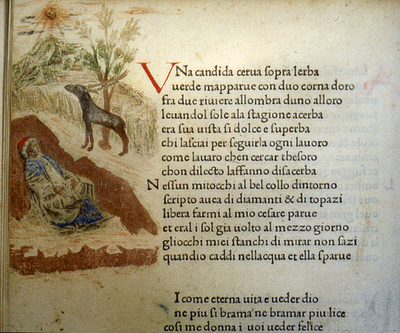 VNa candida cerua sopra lerba
uerde mapparue con duo corna doro
fra due riuiere allombra duno alloro
leuandol sole ala stagione acerba
era sua uista si dolce e superba
chi lasciai per seguirla ogni lauoro
come lauaro chen cercar thesoro
chon dilecto laffanno disacerba
Nessun mitocchi al bel collo dintorno
scripto auea di diamanti & di topazi
libera farmi al mio cesare parue
et eral i sol gia uolto al mezzo giorno
gliocchi miei stanchi di mirar non sazi
quandio caddi nellacqua et ella sparue
I come eterna uita e ueder dio
ne piu si brama ne bramar piu lice
cosi me donna i uoi ueder felice